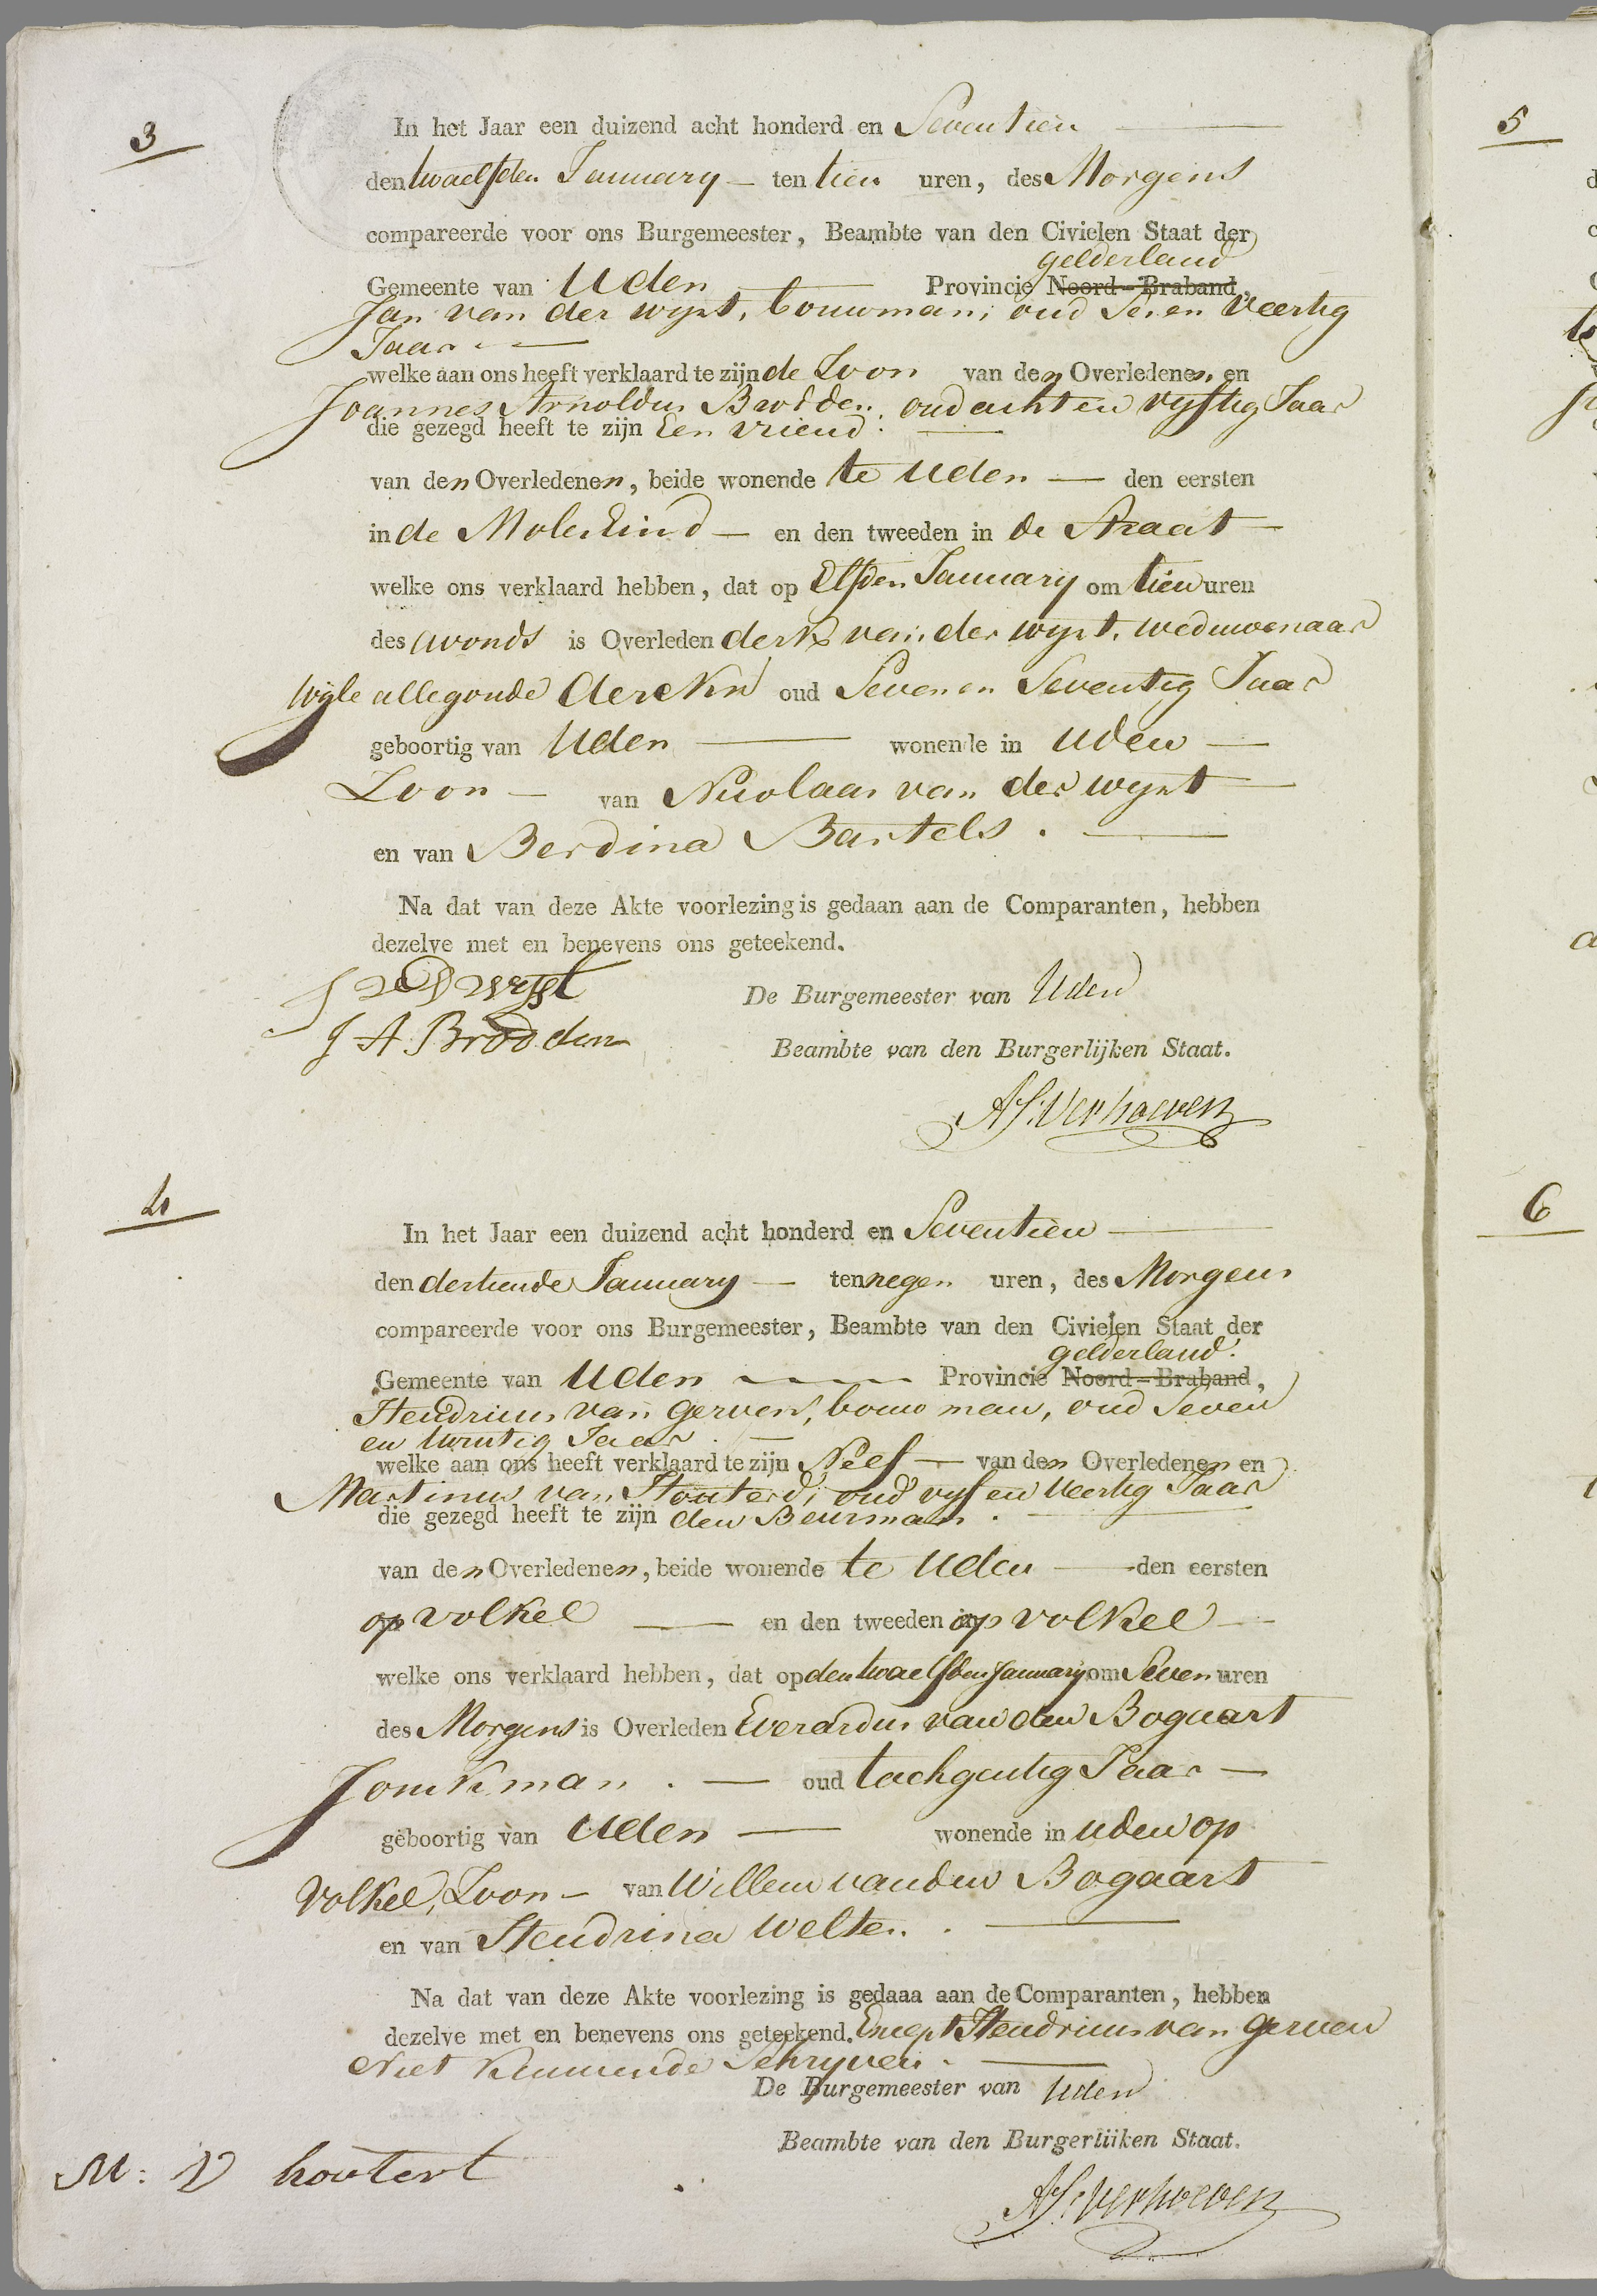 3
In het Jaar een duizend acht honderd en Seventien
den twaelfden January ten tien uren, des Morgens
compareerde voor ons Burgemeester, Beambte van den Civielen Staat der
gelderland
Gemeente van Uden Provincie Noord-Braband,
Jan van der wyst, bouwman, oud Seven Veertig
Jaar
welke aan ons heeft verklaard te zijn de Zoon van den Overledenen en
Joannes Arnoldus Brodden oud acht en vyftig Jaar
die gezegd heeft te zijn Een vriend
van den Overledenen, beide wonende te Uden den eersten
in de Molen Eind en den tweeden in de Straat
welke ons verklaard hebben, dat op Elfden January om tien uren
des avonds is Overleden derk van der wyst, weduwenaar
wyle allegonde derckx oud Seven en Seventig Jaar
geboortig van Uden wonende in uden
Zoon van Nicolaas van der wyst
en van Berdina Bartels.
Na dat van deze Akte voorlezing is gedaan aan de Comparanten, hebben
dezelve met en benevens ons geteekend.
J v D wyst
J A. Brodden
De Burgemeester van Uden
Beambte van den Burgerlijken Staat.
AS: Verhoeven
4
In het Jaar een duizend acht honderd en Seventien
den dertiende January ten negen uren, des Morgens
compareerde voor ons Burgemeester, Beambte van den Civielen Staat der
gelderland
Gemeente van Uden Provincie Noord-Braband,
Hendricus van gerven, bouw man, oud Seven
en twintig Jaar
welke aan ons heeft verklaard te zijn Neef van den Overledenen en
Martinus van Houterd, oud vyf en Veertig Jaar
die gezegd heeft te zijn den Buurman.
van den Overledenen, beide wonende te Uden den eersten
op volkel en den tweeden in op volkel
welke ons verklaard hebben, dat op den twaelfden January om Seven uren
des Morgens is Overleden Everardus van den Bogaart
Jonckman. oud tachgentig Jaar
geboortig van Uden wonende in uden op
Volkel, Zoon van Willem van den Bogaart
en van Hendrina Welten.
Na dat van deze Akte voorlezing is gedaaa aan de Comparanten, hebben
dezelve met en benevens ons geteekend. Except Hendricus van gerven
Niet kunnende Schryven.
De Burgemeester van Uden
Beambte van den Burgerlijken Staat.
M: V houtert
AS: Verhoeven
5
6